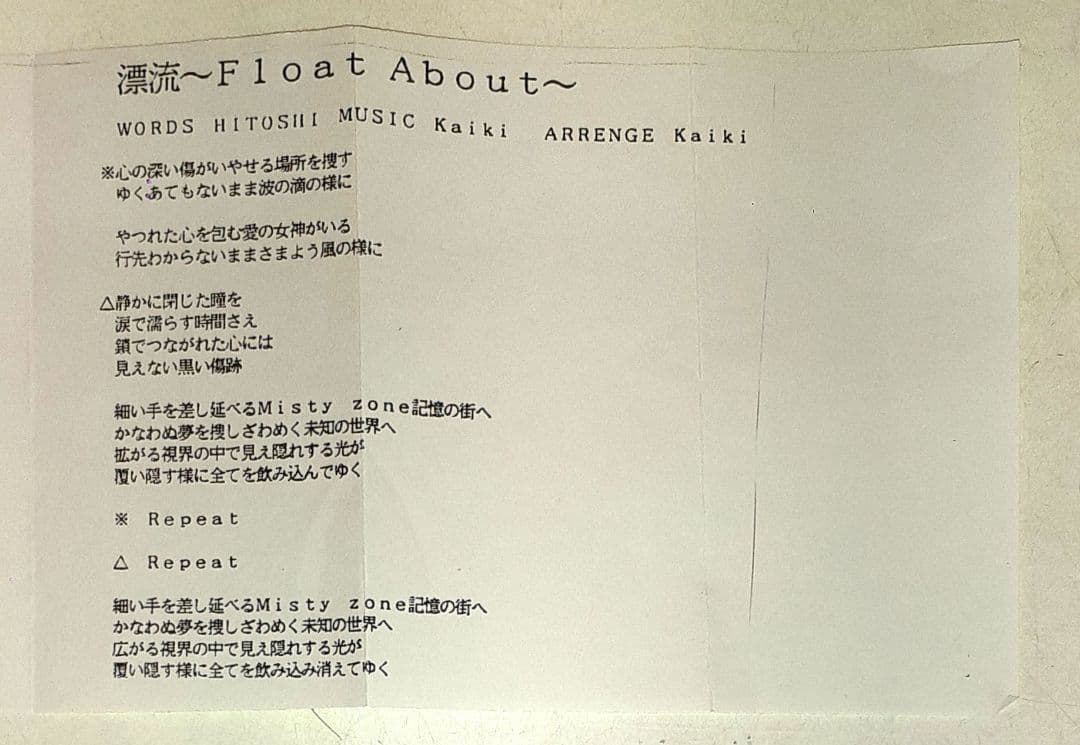 漂流～Float About～
WORDS HITOSHI MUSIC Kaiki ARRENGE Kaiki
※心の深い傷がいやせる場所を捜す
ゆくあてもないまま波の滴の様に
やつれた心を包む愛の女神がいる
行先わからないままさまよう風の様に
△静かに閉じた瞳を
涙で濡らす時間さえ
鎖でつながれた心には
見えない黒い傷跡
細い手を差し延べるMisty zone記憶の街へ
かなわぬ夢を捜しざわめく未知の世界へ
拡がる視界の中で見え隠れする光が
覆い隠す様に全てを飲み込んでゆく
※ Repeat
△ Repeat
細い手を差し延べるMisty zone記憶の街へ
かなわぬ夢を捜しざわめく未知の世界へ
広がる視界の中で見え隠れする光が
覆い隠す様に全てを飲み込み消えてゆく